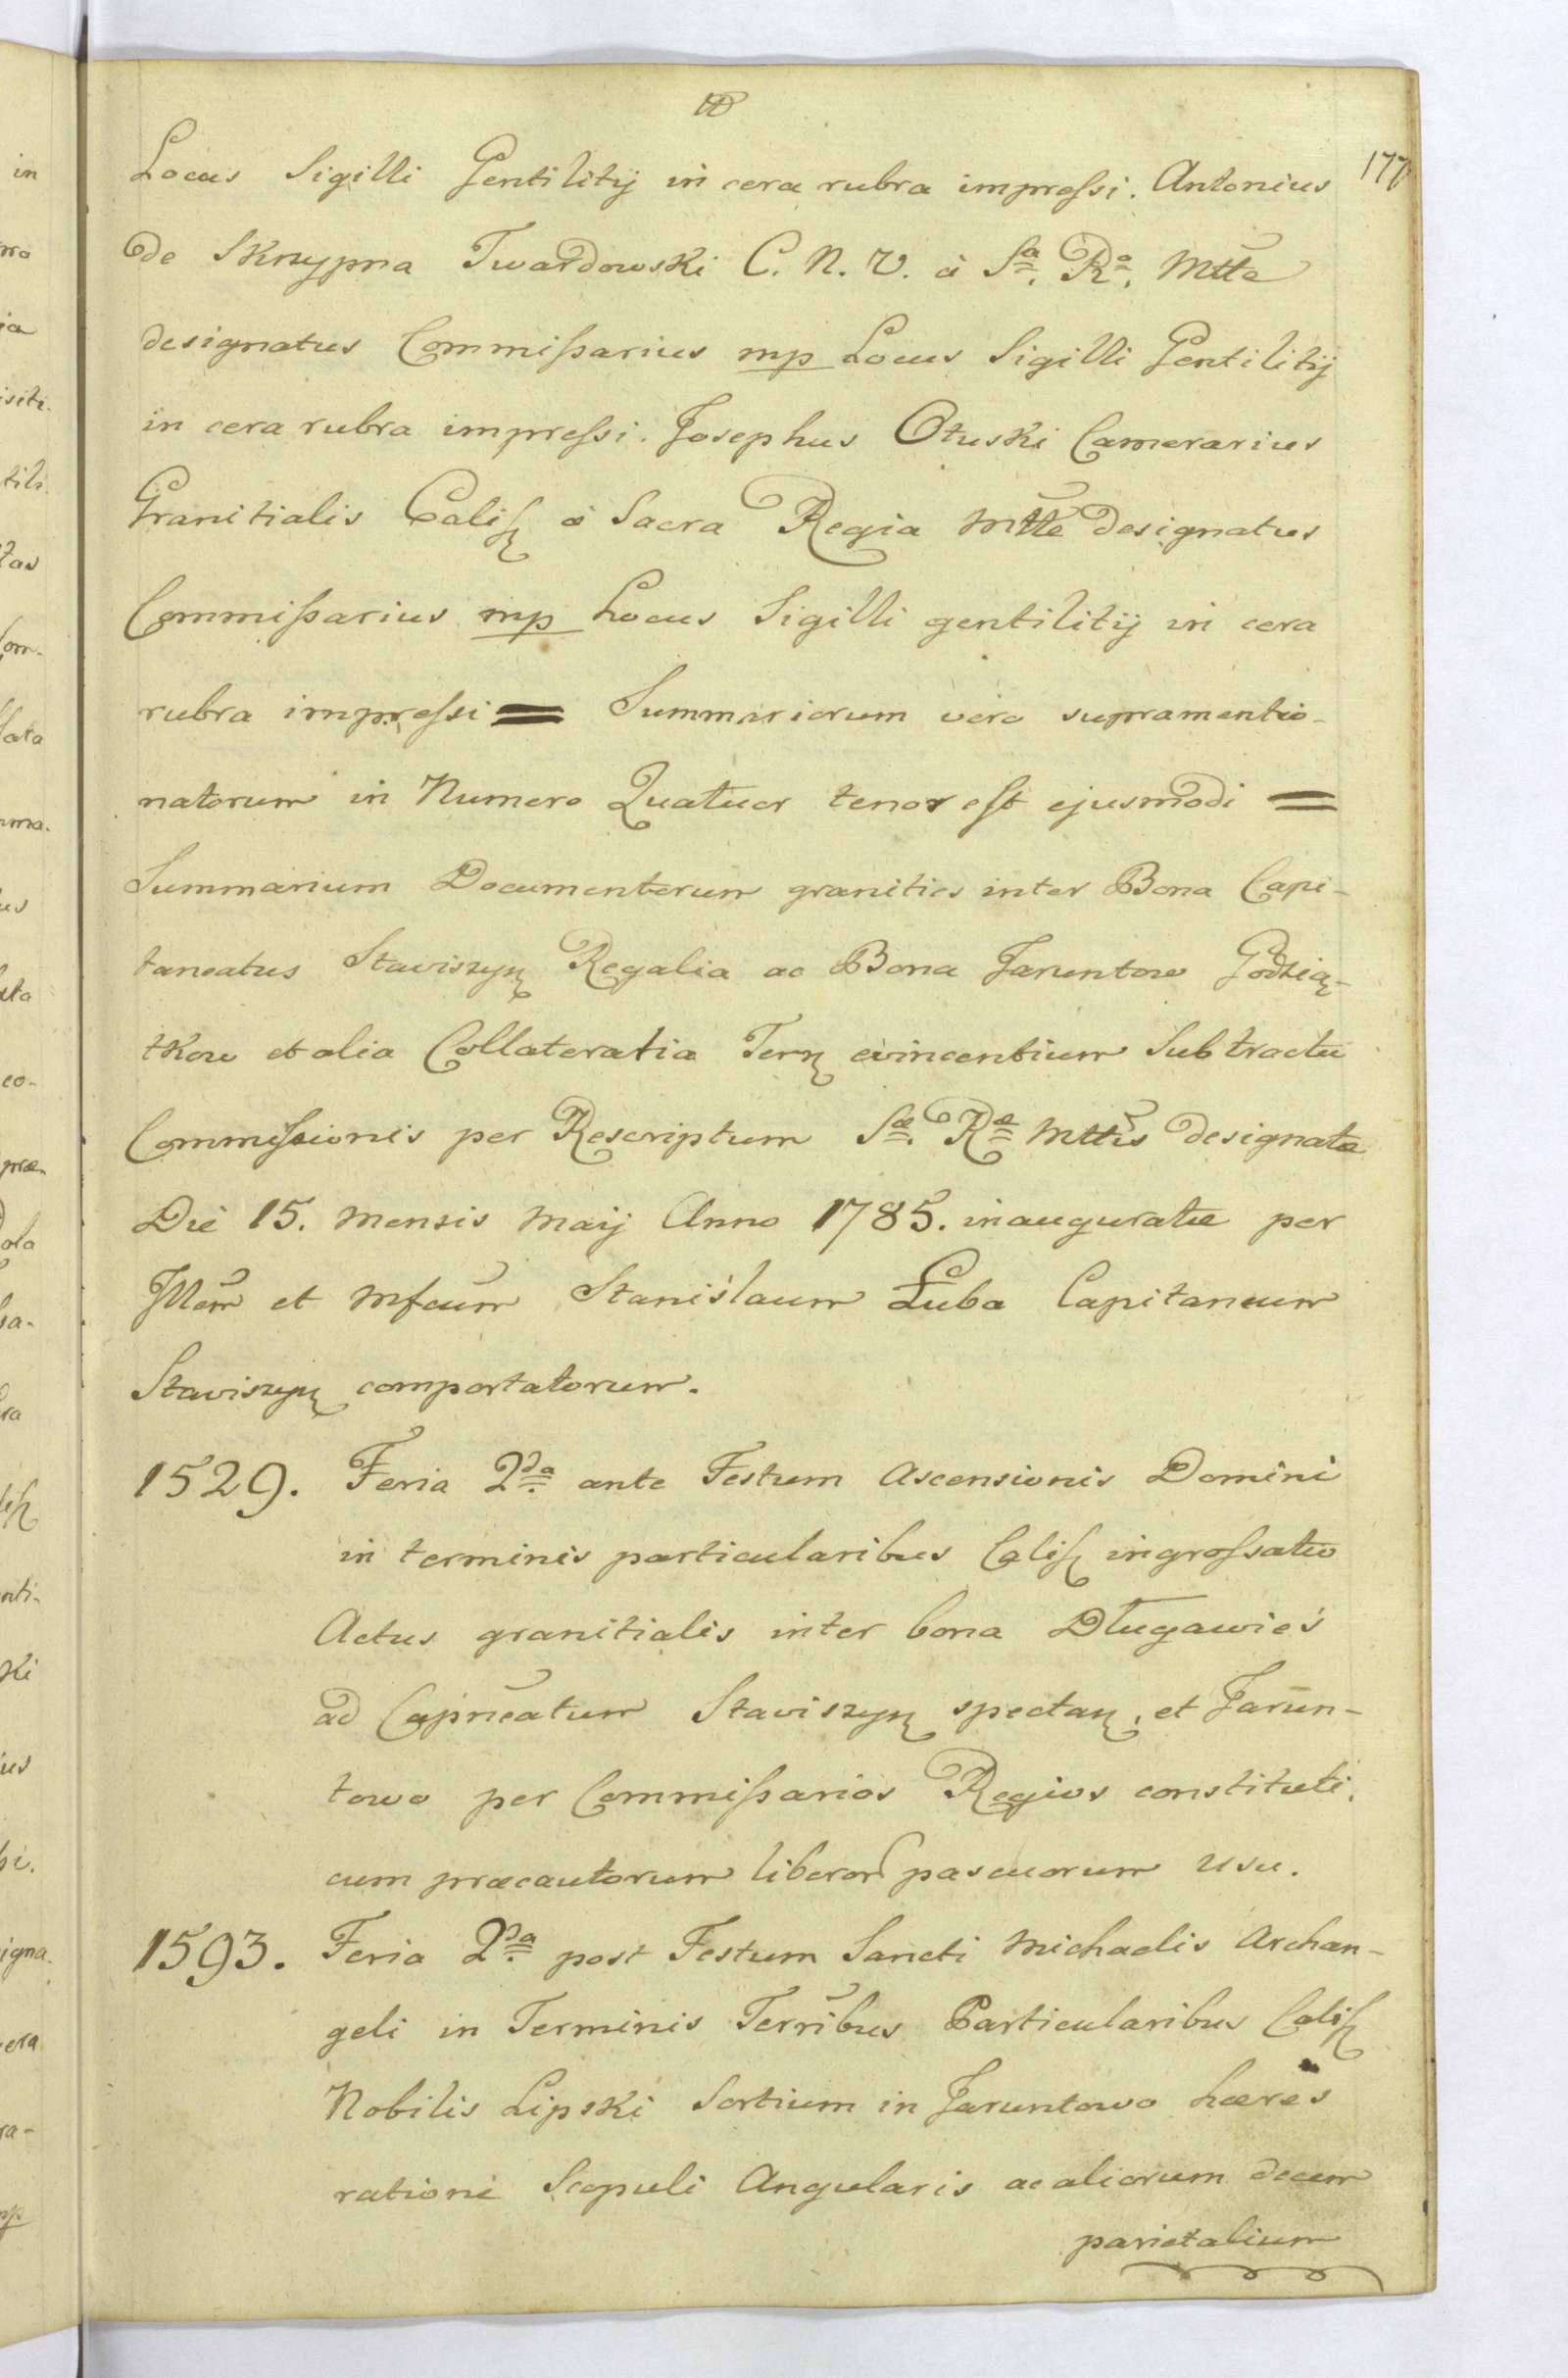 177
Locus Sigilli Gentilitij in cera rubra impressi. Antonius
de Skrzypna Twardowski C. N. V. à Sa. Ra. Mtte
designatus Commissarius mp Locus Sigilli Gentilitij
in cera rubra impressi. Josephus Otuski Camerarius
Granitialis Calis à Sacra Regia Mtte designatus
Commissarius mp Locus Sigilli gentilitij in cera
rubra impressi = Summariorum vero supramentio-
natorum in Numero Quatuor tenor est ejusmodi =
Summarium Documentorum granities inter Bona Capi-
taneatus Staviszyn Regalia ac Bona Jaruntow Godzią-
tkow et alia Collateralia Terrn evincentium Sub tractu
Commissionis per Rescriptum Sæ. Ræ Mttis designatæ
Die 15. Mensis Maij Anno 1785. inauguratæ per
Jllem et Mfcum Stanisłaum Łuba Capitaneum
Staviszyn comportatorum.
1529. Feria 2da ante Festum Ascensionis Domini
in terminis particularibus Calis ingrossatus
Actus granitialis inter bona Długawieś
ad Capneatum Staviszyn spectan, et Jarun-
towo per Commissarios Regios constituti,
cum præcautorum liberor pascuorum usu.
1593. Feria 2da post Festum Sancti Michaelis Archan-
geli in Terminis Terribus Particularibus Calis
Nobilis Lipski Sortium in Jaruntowo hæres
rationi Scopuli Angularis ac aliorum decem
parietalium